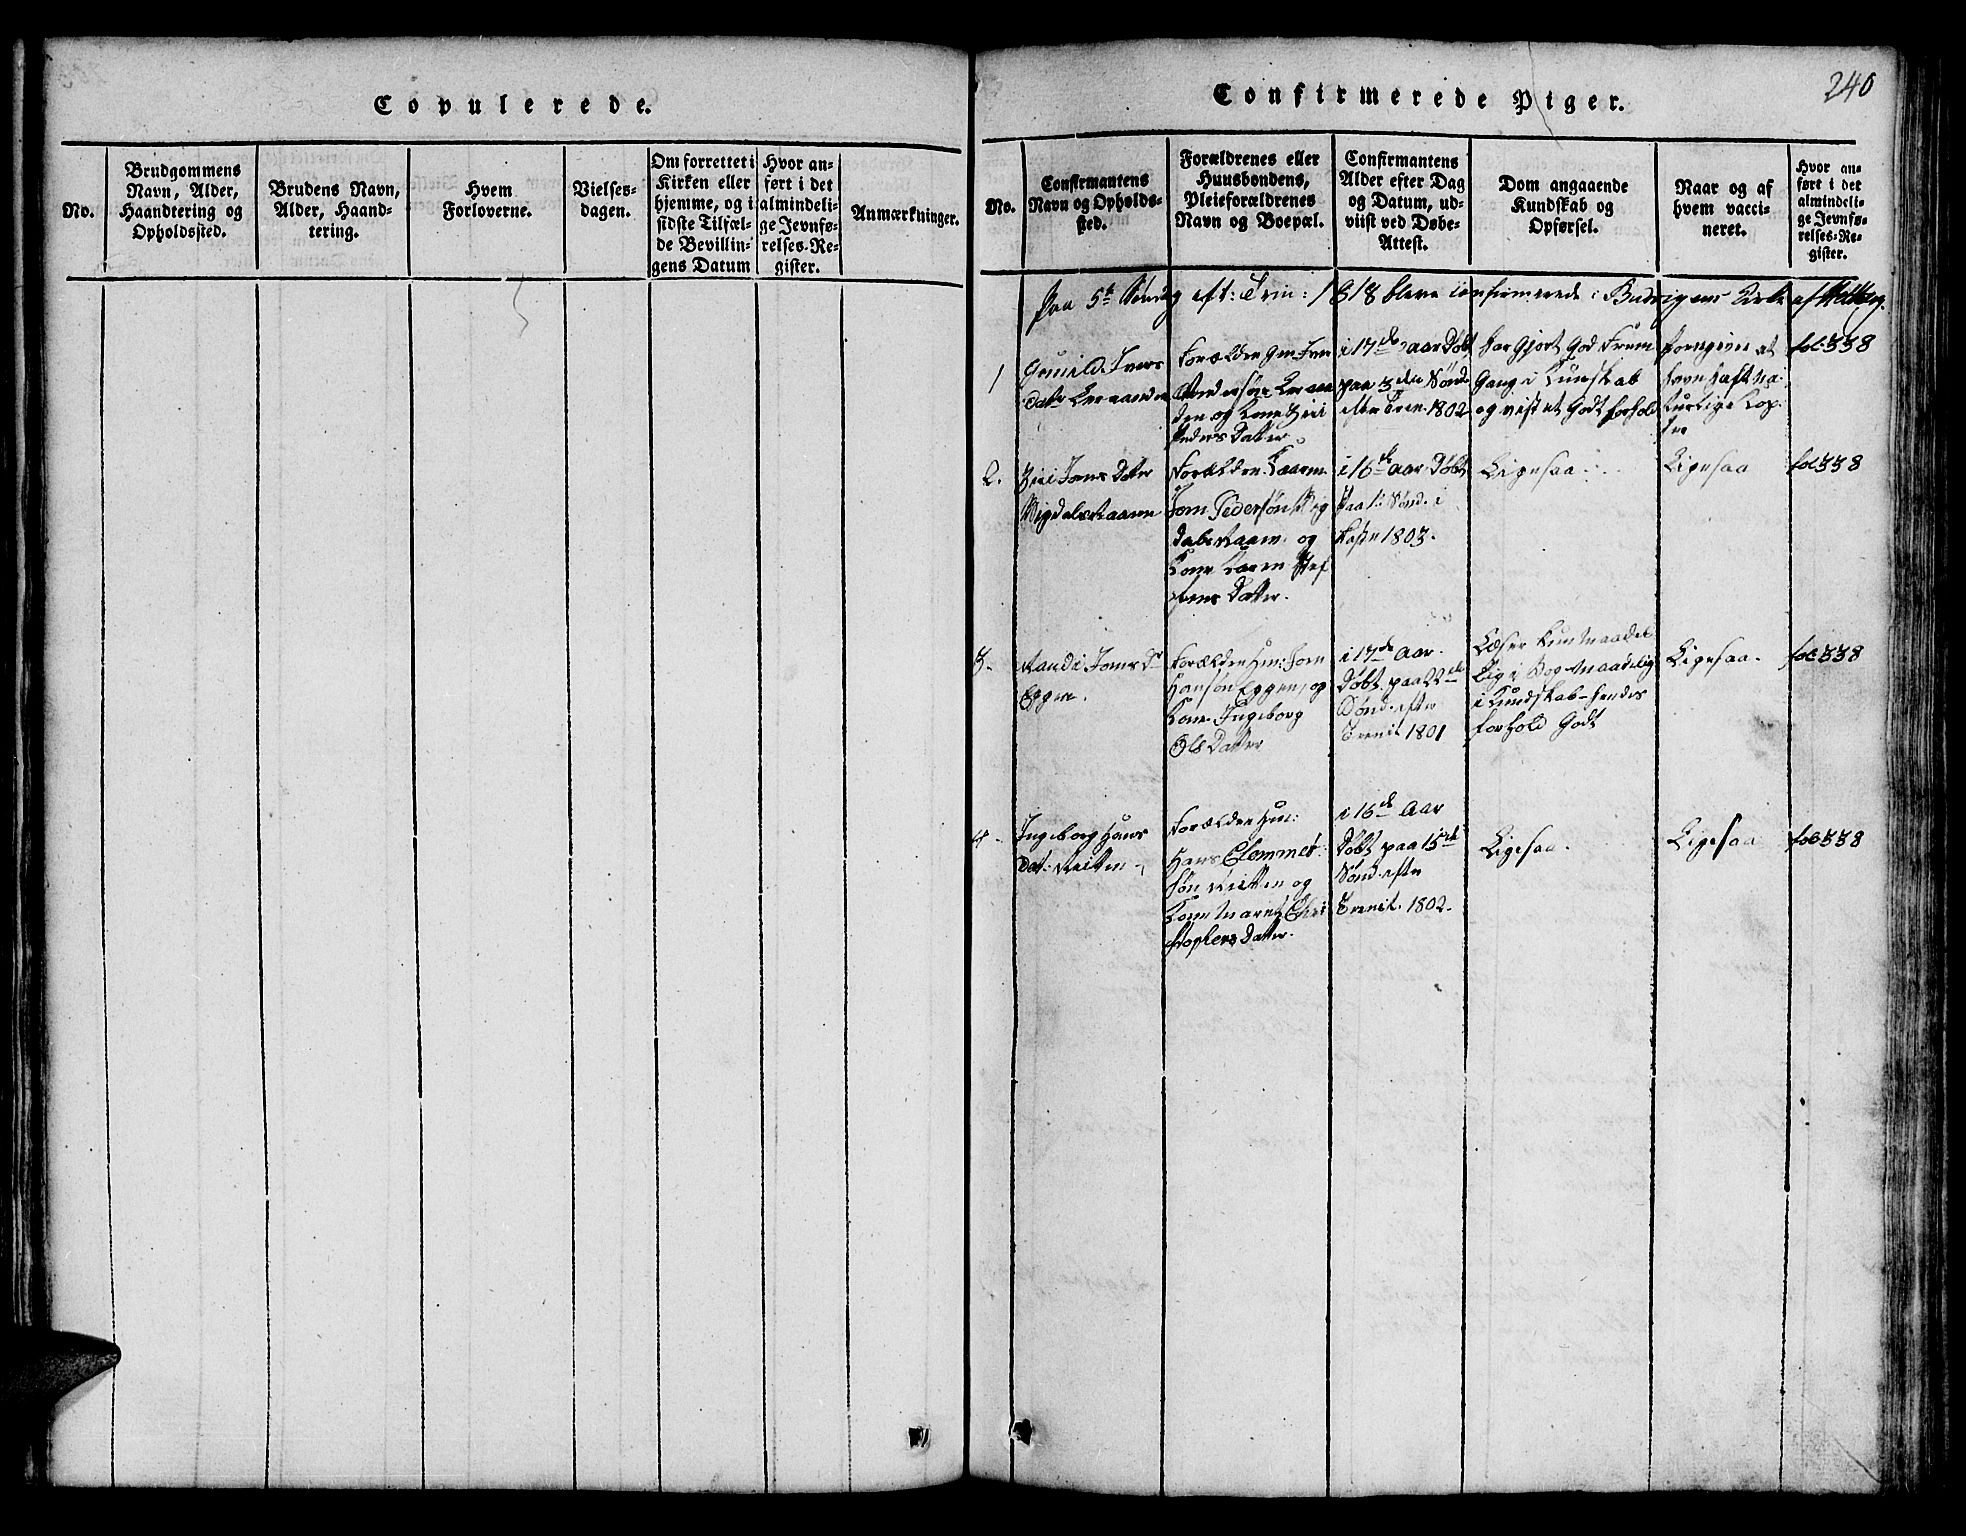 Copulerede.
No.
Brudgommens
Navn, Alder,
Haandtering og
Opholdssted.
Brudens Navn,
Alder, Haand-
tering.
Hvem
Forloverne.
Vielses-
dagen.
Om forrettet i
Kirken eller
hjemme, og i
sidste Tilfæl-
de Bevillin-
gens Datum
Hvor an-
ført i det
almindeli-
ge Jevnfø-
relses-Re-
gister.
Anmærkninger.
Confirmerede Piger.
240
No.
Confirmantens
Navn og Opholds-
sted.
Forældrenes eller
Huusbondens,
Pleieforældrenes
Navn og Boepæl.
Confirmantens
Alder efter Dag
og Datum, ud-
viist ved Døbe-
Attest.
Dom angaaende
Kundskab og
Opførsel.
Naar og af
hvem vacci-
neret.
Hvor an-
ført i det
almindeli-
ge Jevnfø-
relses-Re-
gister.
Paa 5te Søndag eft: Trin: 1818 bleve confirmerede i Kirke af
1
Gunild Ivers
datr
Forældre Iver
og Kone
Peders Datter
i 17de Aar Døbt
paa 3die Sønd.
efter Tren. 1802
har Gjort God Frem
Gang i Kunskab
og vist et Godt forhold
Foregiver at
have haft na-
turlige Kop-
per
fol 338
2.
Jons Datter
Forældre
Jon Pedersøn
og
Kone Karen
Datter.
i 16de aar Døbt
Paa 1te Sønd. i
Faste 1803.
Ligesaa
Ligesaa
fol 338
3.
Randi Jons Dr
Eggen.
Forældre Jon
Hansøn Eggen, og
Kone Ingeborg
Ols Datter
i 17de Aar.
Døbt paa 22de
Sønd. efter
Trenit 1801
Læser kun maade-
lig i Bog Maadelig
i Kundskab- hendes
forhold Godt
Ligesaa.
fol 338
4.
Ingeborg Hans
Dat: Reitten
Forældre
Hans Clemmet
søn Reitten og
Kone Maret Chri
stophers Datter.
i 16de Aar
Døbt paa 15de
Sønd. efter
Trenit. 1802.
Ligesaa.
Ligesaa
fol 338